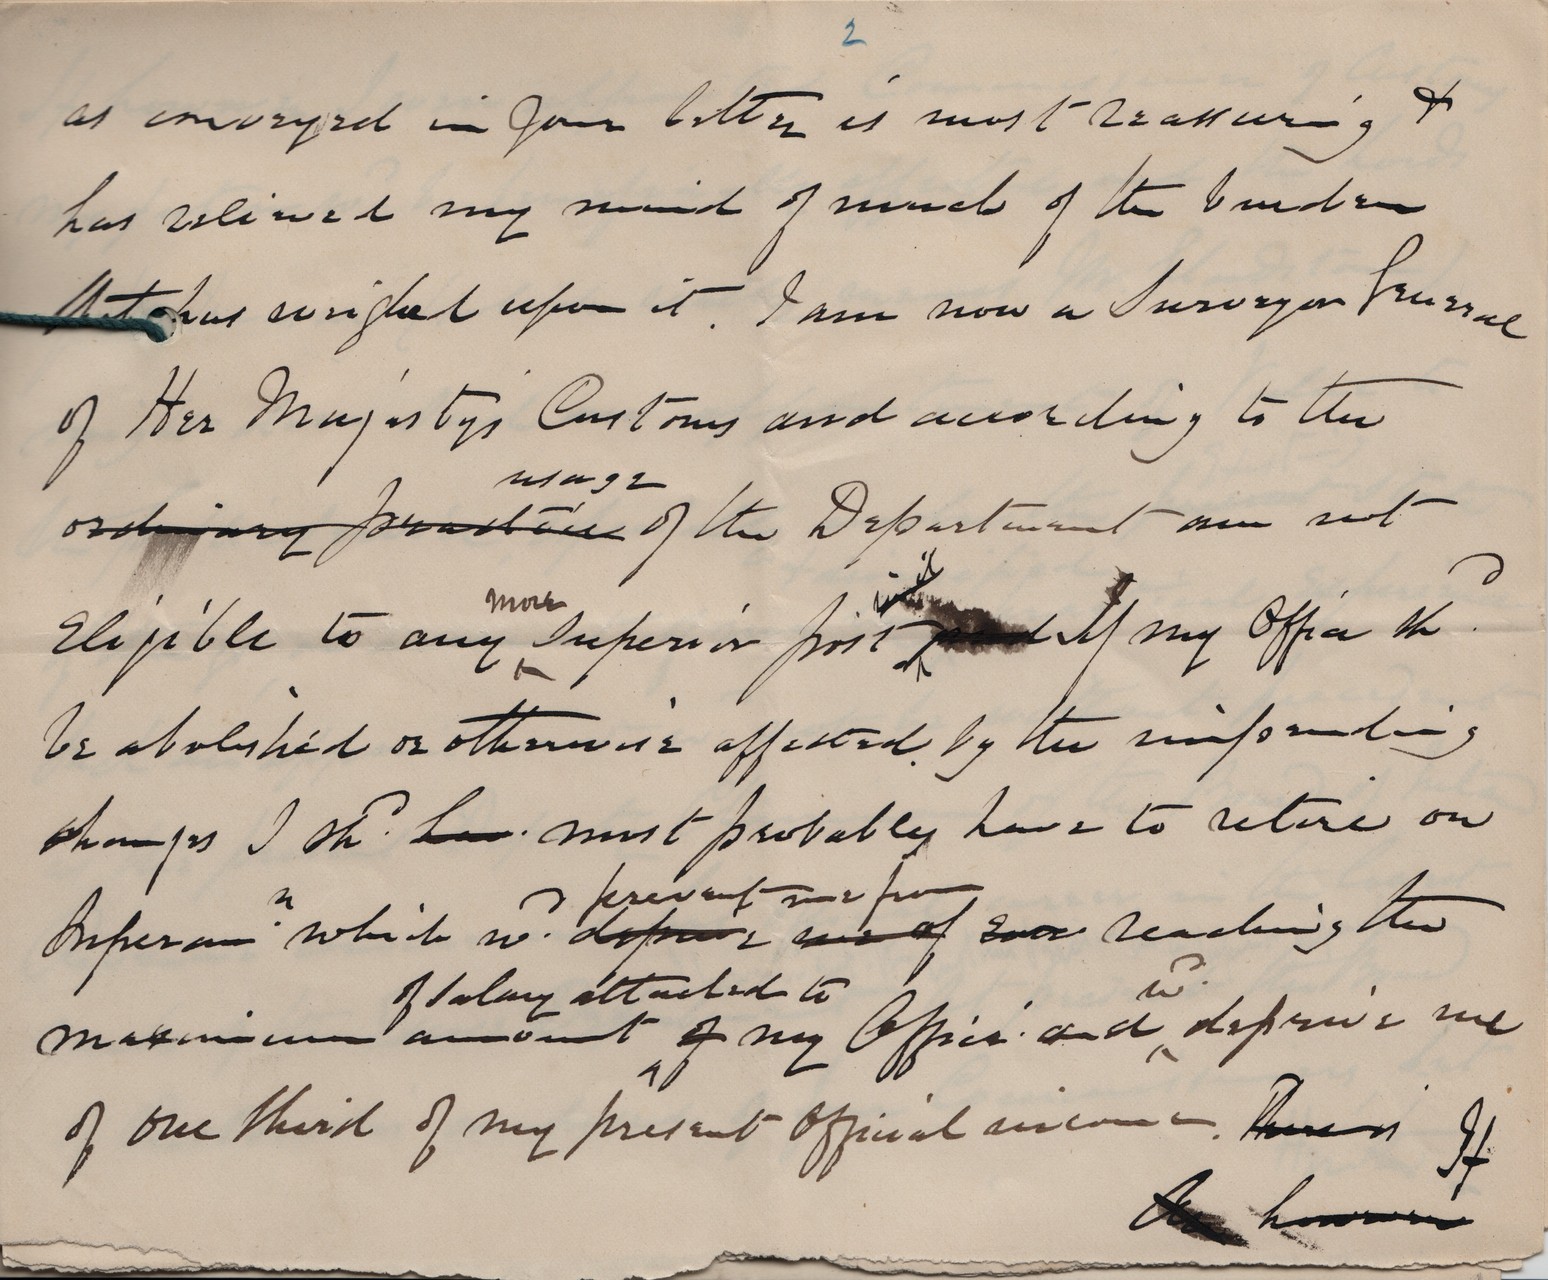 2
as conveyed in your letter is most reassuring &
has relieved my mind of much of the burden
that has weighed upon it. I am now a Surveyor General
of Her Majesty's Customs and according to the
usage
ordinary practice of the Department am not
more
Eligible to any Superior post and If my Office shd.
be abolished or otherwise affected by the impending
changes I shd. have most probably have to retire on
prevent me from
Superann which wd. deprive me of ever reaching the
of salary attached to
wd.
maximum amount of my Office and deprive me
of one third of my present Official income. There is If
As however